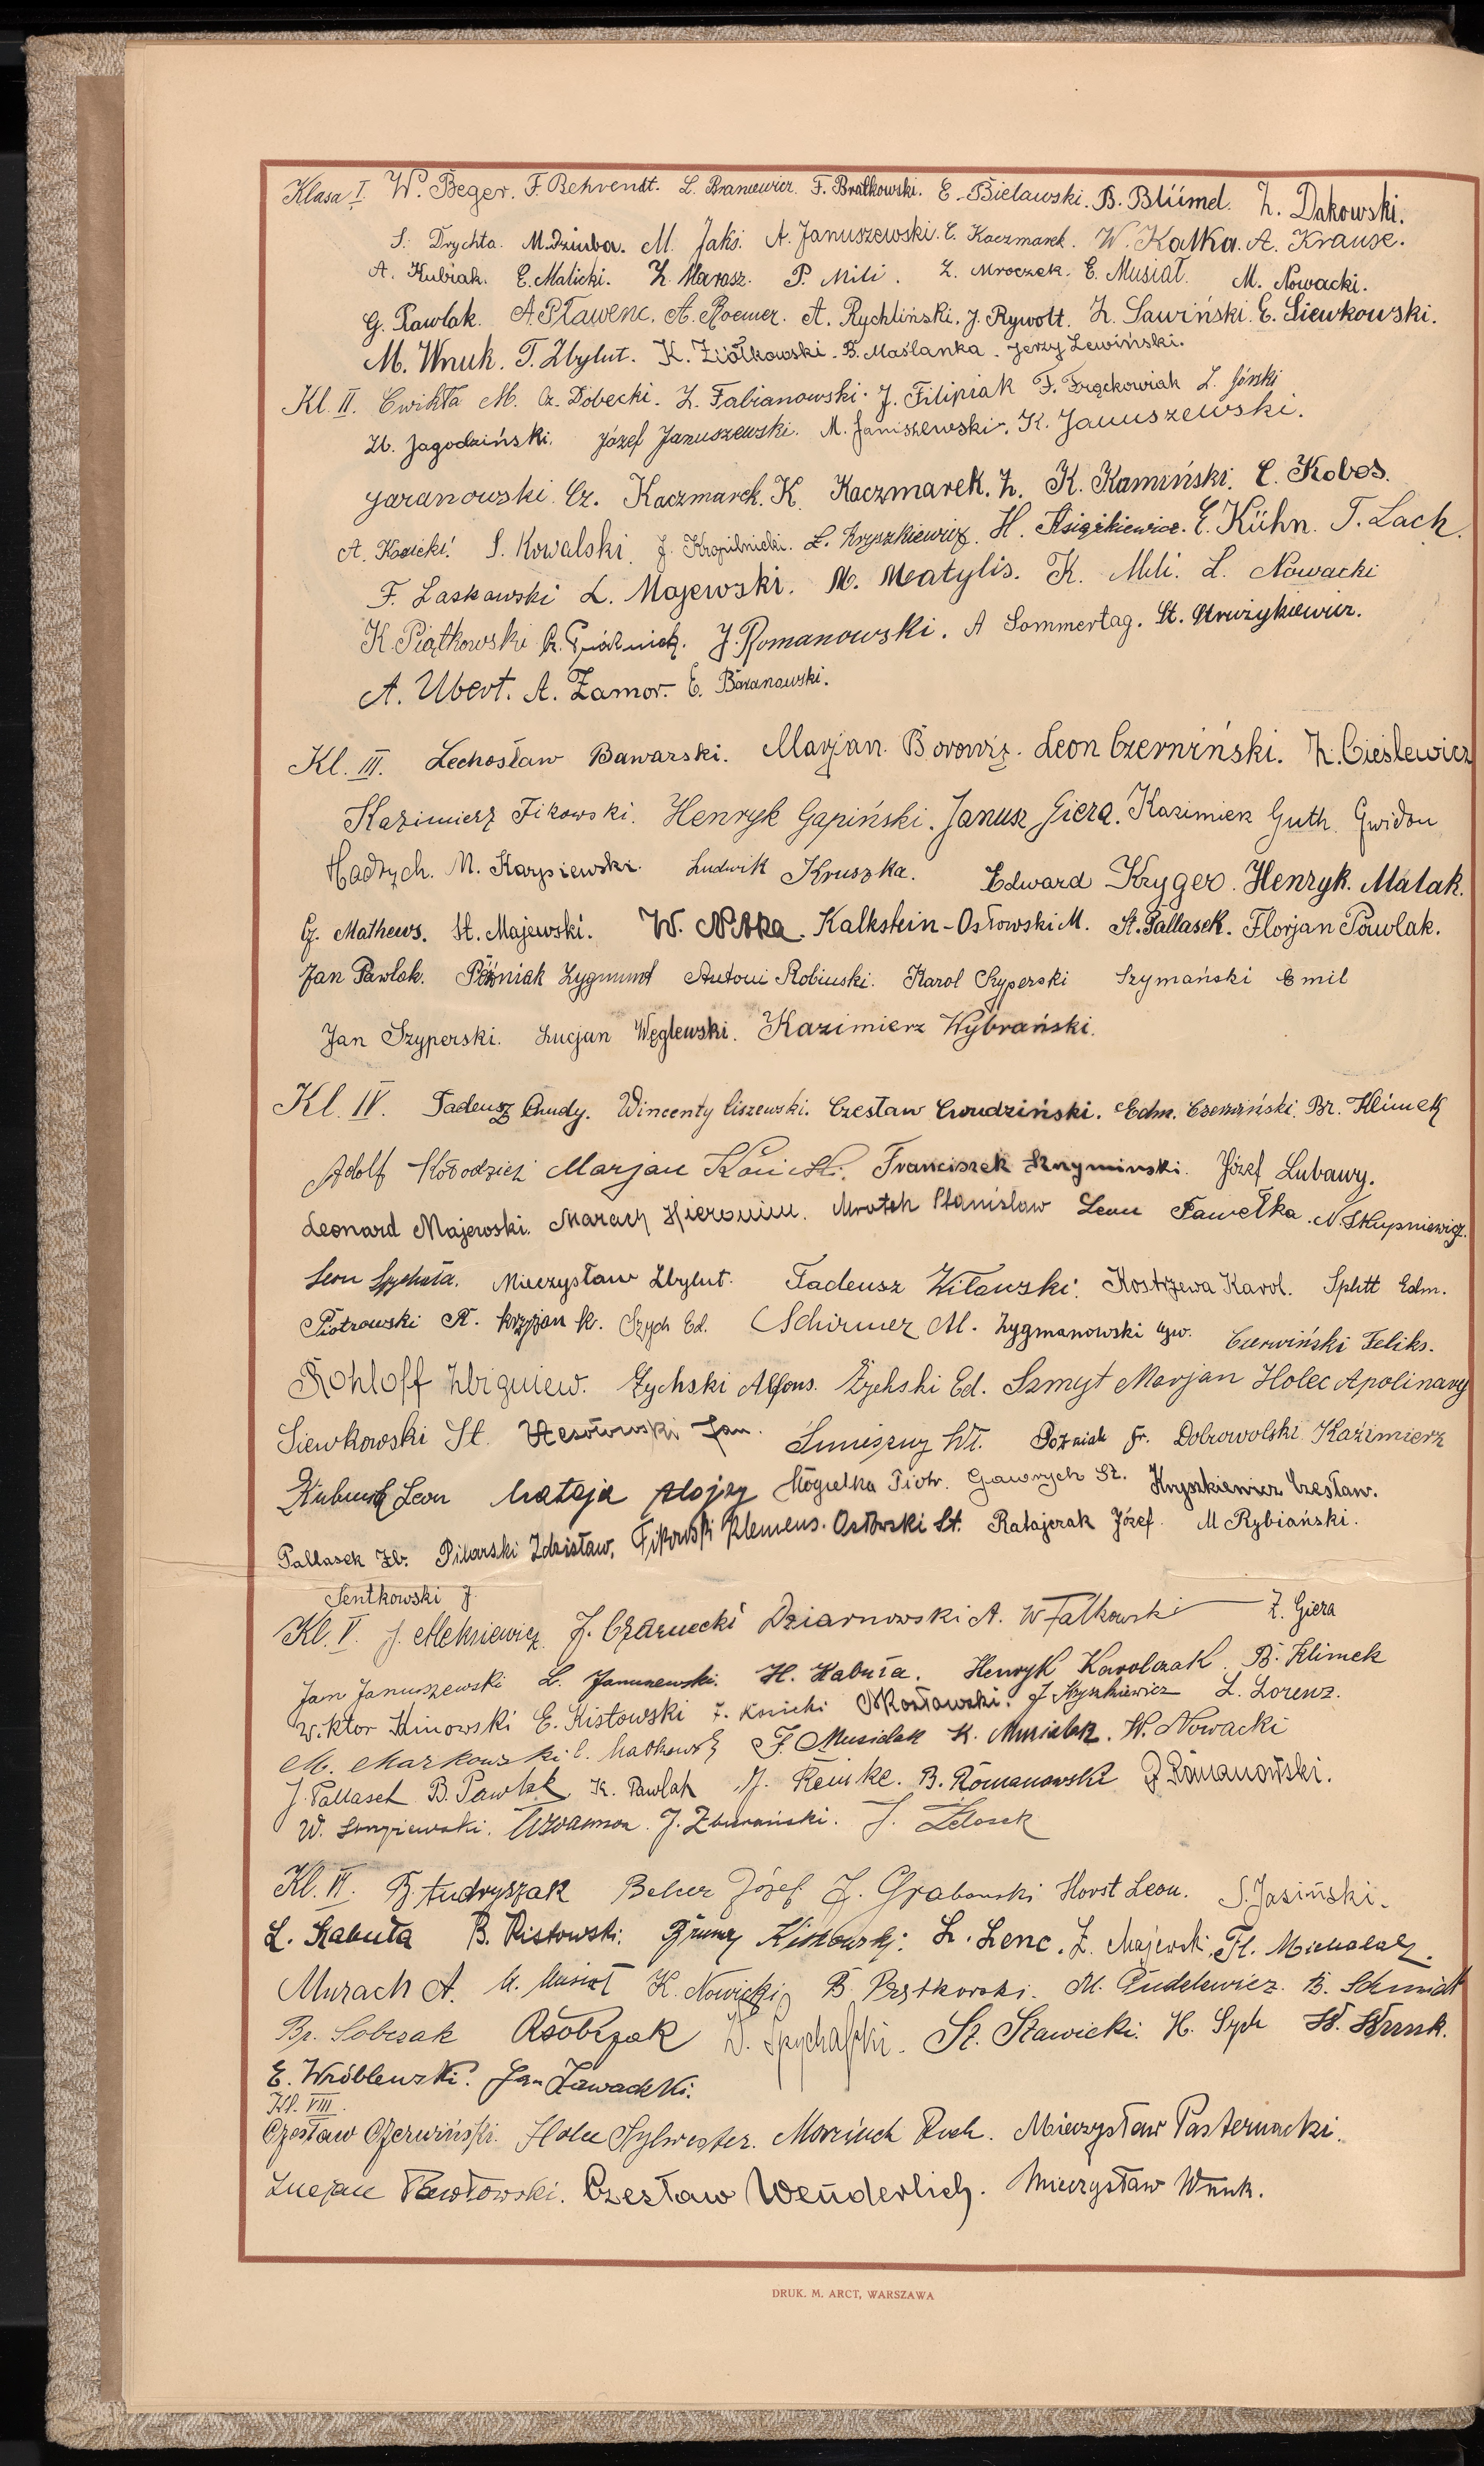 Klasa I. W. Beger. F. Behrendt. L. Braniewicz. F. Bratkowski. E. Bielawski. B. Blüмel. Z. Dakowski.
S. Drychta. M. Dziuba. M. Jaks. A. Januszewski. E. Kaczmarek. W. Kalka. A. Krause.
A. Kubiak. E. Malicki. Z. Marasz. P. Mili. Z. Mroczek. E. Musiał. M. Nowacki.
G. Pawlak. A. Pławenc. A. Roemer. A. Rychliński. J. Rywolt. Z. Sawiński. E. Siewkowski.
M. Wnuk. T. Zbylut. K. Ziółkowski. B. Maślanka. Jerzy Lewiński.
Kl. II. Cwikła M. Cz. Dobecki. Z. Fabianowski. J. Filipiak F. Frąckowiak L. Górski
Zb. Jagodziński. Józef Januszewski. M. Janiszewski. K. Januszewski.
Jaranowski Cz. Kaczmarek. K. Kaczmarek. Z. K. Kamiński. E. Kobos.
A. Kosicki. S. Kowalski. J. Kropilnicki. L. Kryszkiewicz. H. Książkiewicz. E. Kühn. T. Lach.
F. Laskowski L. Majewski. M. Matylis. K. Mili. L. Nowacki
K. Piątkowski J. Romanowski. A Sommertag. St. Strużykiewicz.
A. Ubert. A. Zamor. E. Baranowski.
Kl. III. Lechosław Bawarski. Marjan Borowicz. Leon Czerniński. Z. Cieślewicz
Kazimierz Fikowski. Henryk Gapiński. Janusz Giera. Kazimierz Guth. Gwidon
Hadrych. M. Karpiewski. Ludwik Kruszka. Edward Kryger. Henryk Malak.
G. Mathews. St. Majewski. W. Nitka. Kalkstein-Osłowski M. St. Pallasek. Florjan Pawlak.
Jan Pawlak. Poźniak Zygmunt Antoni Robiński. Karol Szyperski Szymański Emil
Jan Szyperski. Lucjan Węglewski. Kazimierz Wybrański.
Kl. IV. Tadeusz Chudy. Wincenty Ciszewski. Czesław Cwudziński. Edm. Czerwiński. Br. Klimek
Adolf Kołodziej Marjan Konicki. Franciszek Krzymiński. Józef Lubawy.
Leonard Majewski. Marach Hieronim. Mrotek Stanisław Leon Pawełka. N. Skupniewicz.
Leon Spychała. Mieczysław Zbylut. Tadeusz Witowski. Kostrzewa Karol. Splitt Edm.
Piotrowski K. Krzyżan K. Szych Ed. Schirmer M. Zygmanowski Czerwiński Feliks.
Rohloff Zbigniew. Żychski Alfons. Żychski Ed. Szmyt Marjan Holec Apolinary
Siewkowski St. Wesołowski Jan. Poźniak Fr. Dobrowolski Kazimierz
Leon Mataja Alojzy Mogiełka Piotr. Gawrych St. Kryszkiewicz Czesław.
Pallasek Zb. Pilarski Zdzisław, Fikowski Klemens. Osłowski St. Ratajczak Józef. M Rybiański.
Sentkowski J.
Kl. V. J. Aleksiewicz J. Czarnecki Dziarnowski A. W Falkowski Z. Giera
Jan Januszewski L. Januszewski. H. Kabuła. Henryk Karolczak B. Klimek
Wiktor Kinowski E. Kistowski F. Kosicki J Kryszkiewicz L. Lorenz.
M. Markowski F. Musidak K. Musialak. H. Nowacki
J. Pallasch B. Pawlak K. Pawlak M. Reinke. B. Romanowski Romanowski.
W. J. Zburański. J. Żelasek
Kl. VI. B. Andryszak Beher Józef J. Grabowski Horst Leon. S. Jasiński.
L. Kabuła B. Kistowski. Kistowski. L. Lenc. Z. Majewski. Fl. Michalak.
Murach A. M. Musioł K. Nowicki B. Piątkowski. M. Pudelewicz. B. Schmidt
Br. Sobczak R Sobczak W. Spychalski. St. Stawicki. H. Sych W. Wnuk.
E. Wróblewski. Jan Zawadzki.
Kl. VIII.
Czesław Czerwiński. Holec Sylwester. Marciuch Rich. Mieczysław Pasternacki.
Lucjan Pawłowski. Czesław Wenderlich. Mieczysław Wnuk.
DRUK. M. ARCT, WARSZAWA